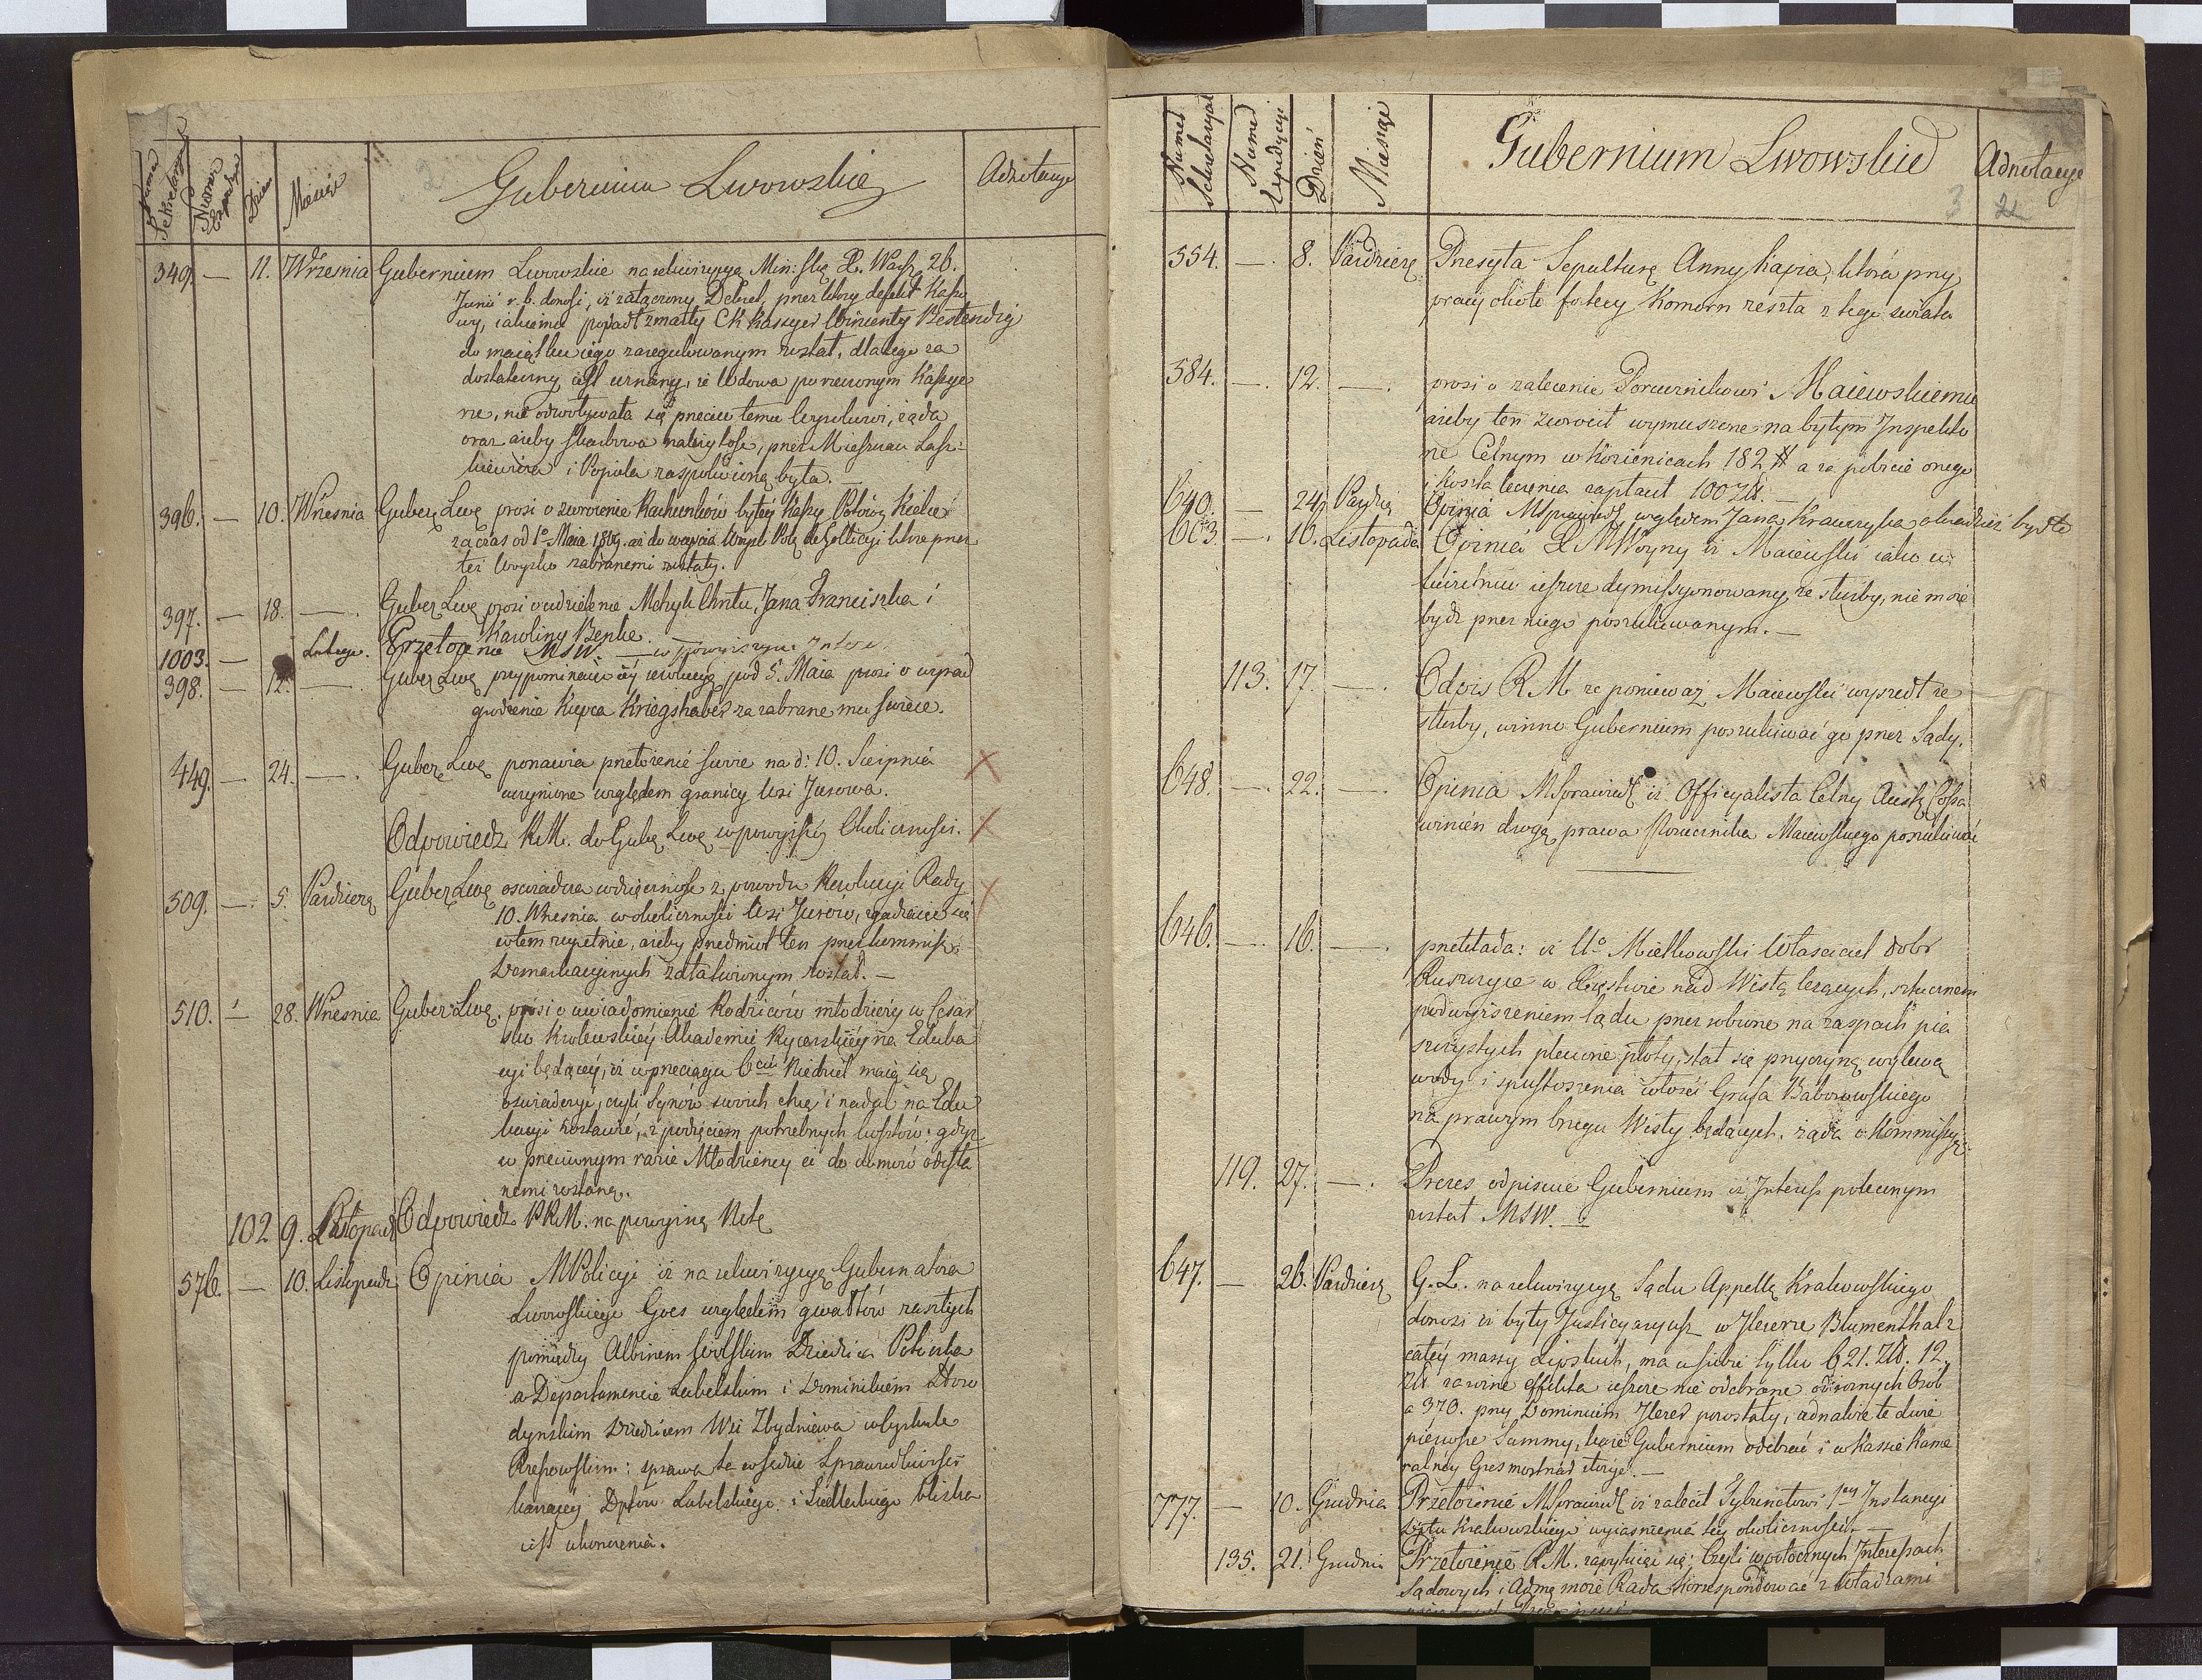 Numer Sekretaryat
Numer Expedycyi
Dzien
Miesiąc
Gubernium Lwowskie
Adnotacye
349. — 11. Wrzesnia Gubernium Lwowskie na rekwizycyą Min: Skę X. Warsz 26.
Junii r. b. donosi, iż zatączony Dekret, przez który defekt Kasso
wy, iakiemu popadł zmarły CK Kassyer Wincenty Bestendig
do maiątku iego zaregulowanym został, dlatego za
dostateczny iest uznany, że Wdowa po rzeczonym Kassye
rze, nie odwoływała się przeciw temu
oraz ażeby skarbowa należytość, przez Mieszczan Łasz-
kiewicza i Popiela zaspokoioną była. —
396. — 10. Wrzesnia Guber Lwę prosi o zwrocenie Rachunków byłey Kassy
za czas od 1o Maia 1809. aż do weyscia Woysk Pols do Gallicyi które przez
też Woysko zabranemi zostały.
397. — 18. — Guber Lwę prosi o udzielenie Metryk Chrztu, Jana Franciszka i
Karoliny Benke.
1003. — Lutego. Przełożenie MSW. — w powyższym Inter
398. — 12. — Guber Lwę przypominaiąc iey rewolucyą pod 5. Maia prosi o wynad
grodzenie Kupca Kriegshaber za zabrane mu świece.
449. — 24. — Guber Lwę ponawia przełożenie swoie na d: 10. Sierpnia
uczynione względem granicy Wsi Jurowa.
Odpowiedz R.M. do Gubę Lwę w powyższey Okoliczności.
509. — 5. Pazdzierą Guber Lwę oswiadcza wdzięczność z powodu Rewolucyi Rady
10. Wrzesnia w okoliczności Wsi Jurów, zgadzaiąc się
zupełnie, ażeby przedmiot ten przez kommiss:
Demarkacyinych załatwionym został. —
510. — 28. Wrzesnia Guber Lwę. prosi o uwiadomienie Rodziców młodzieży w Cesar
sko Krolewskiey Akademii Rycerskiey na Eduka
cyi będącey, iż w przeciągu 6ciu Niedziel maią się
oswiadczyć, czyli Synów swoich chcą i nadal na Edu
kacyi zostawić, z podięciem potrzebnych kosztów: gdyż
w przeciwnym razie Młodzieńcy ci do domów odesła
nemi zostaną.
102 9. Listopad Odpowiedz PRM. na powyższą Notę
576. — 10. Listopada Opinia MPolicyi iż na rekwizycyą Gubernatora
Lwowskiego Goes względem gwałtów zaszłych
pomiędzy Albinem Dziedzica Potoczka
w Departamencie Lubelskim i Dominikiem Dłow
dynskim Dziedzicem Wsi Zbydniowa w Cyrkule
Rzeszowskim: sprawa ta w Sądzie Sprawiedliwości
karzącey Dptów Lubelskiego i Siedleckiego bliska
iest ukonczenia.
Numer Sekretaryat
Numer Expedycyi
Dzień
Miesiąc
Gubernium Lwowskie
Adnotacye
3
2
554. — 8. Pazdzierę Przesyła Sepulturę Anny Kapia, która przy
pracy około fortecy Komorn zeszła z tego swiata
584. — 12. — prosi o zalecenie Porucznikowi Maiewskiemu
ażeby ten zwrocił wymuszone na byłym Inspekto
rze Celnym w Kozienicach 182 # a za pobicie onego
i koszta leczenia zapłacił 100 Zł. —
640. — 24. Pazdzią Opinia MSprawiedl względem Jana Krawczyka o kradzież bydła
663. — 10. Listopada Opinia X MWoyny iż Maiewski iako w
kwietniu ieszcze dymissyonowany, ze służby, nie może
bydz przez niego poszukiwanym. —
113. 17. — Odpis RM że ponieważ Maiewski wyszedł ze
służby, winno Gubernium poszukiwać go przez Sądy.
648. — 22. — Opinia MSprawiedl iż Officyalista Celny Austr
winien drogą prawa Porucznika Maiewskiego poszukiwać
646. — 16. — przekłada: iż Ur Miełkowski Właściciel dobr
Ruszczyce w Xięstwie nad Wisłą leżących, sztucznem
podwyższeniem lądu przez robione na zaspach pia
szczystych plecione płoty, stał się przyczyną wylewu
wody i spustoszenia włości Grafa Baborowskiego
na prawym brzegu Wisły będących. żąda o Kommissyą.
119. 27. — Prezes odpisuie Gubernium iż Interess poleconym
został MSW. —
647. — 26. Pazdzierą G. L. na rekwizycyą Sądu Appellą Krakowskiego
donosi iż były Justicyaryusz w Ilerze Blumenthal z
całey massy Lipskich, ma u siebie tylko 621. Zł. 12.
Zł za winne effekta ieszcze nie odebrane od roznych Osob
a 370. przy Dominium Ilerer pozostały, adnakże te dwie
pierwsze Summy, każe Gubernium odebrać i w Kassie Kame
ralney Gresmorhrad złożyć. —
777. — 10. Grudnia Przełożenie MSprawiedl iż zalecił Trybunałowi 1ey Instancyi
Dptu Krakowskiego wyiasnienia tey okoliczności. —
135. 21. Grudnia Przełożenie R.M. zapytuiąc się: Czyli w potocznych Interessach
Sądowych i Admę może Rada Korrespondować z Władzami